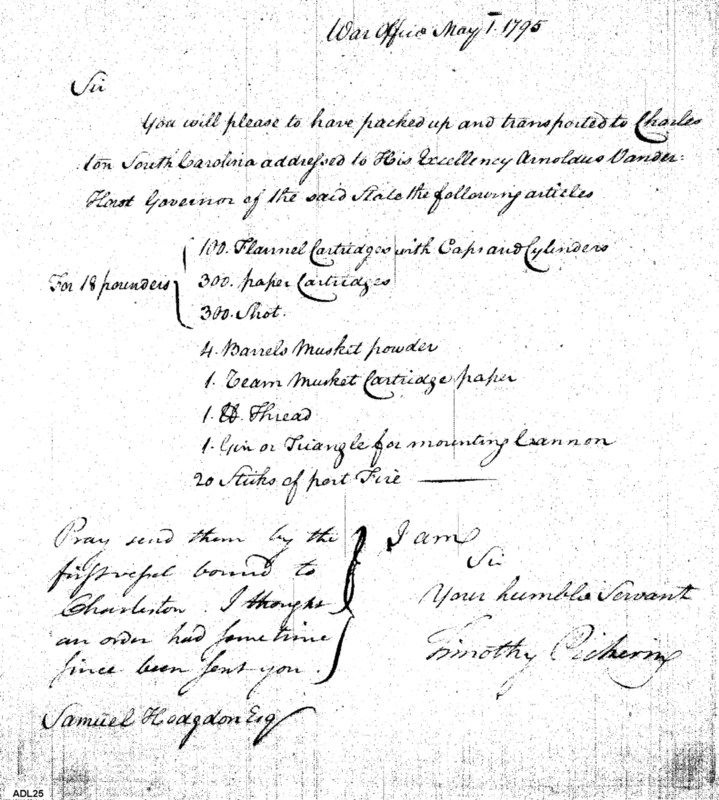 War Office May 1. 1795
Sir
You will please to have packed up and transported to Charles
ton South Carolina addressed to His Excellency Arnoldus Vander-
Horst Governor of the said State the following articles
For 18 pounders
100. Flannel Cartridges with Caps and Cylinders
300. paper Cartridges
300. Shot.
4. Barrels Musket powder
1. Ream Musket Cartridge paper
1. lb. Thread
1. Gin or Triangle for mounting Cannon
20 Sticks of port Fire
Pray send them by the
first vessel bound to
Charleston. I thought
an order had some time
since been sent you.
I am
Sir
Your humble Servant
Timothy Pickering
Samuel Hodgdon Esq
ADL25